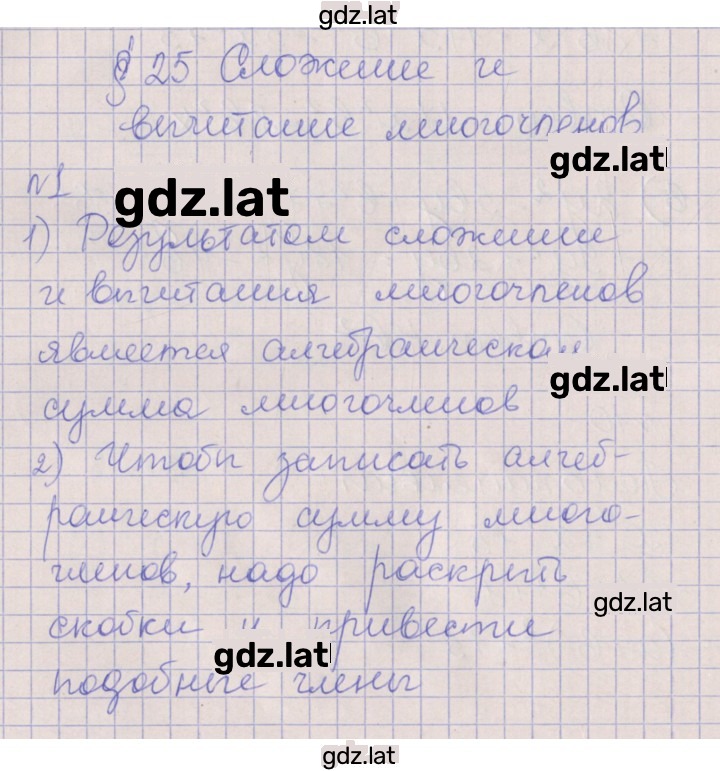 gdz.lat
§ 25 Сложение и
вычитание многочленов
gdz.lat
№1
gdz.lat
1) Результатом сложения
и вычитания многочленов
является алгебраическая
gdz.lat
сумма многочленов
2) Чтобы записать алгеб-
раическую сумму много-
членов, надо раскрыть
gdz.lat
скобки и привести
gdz.lat
подобные члены
gdz.lat